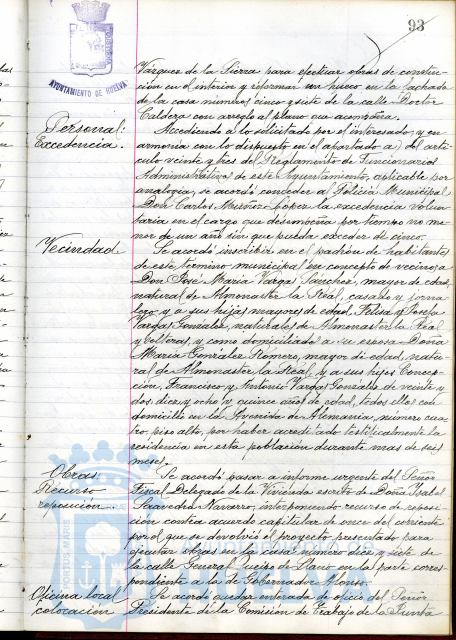 93
AYUNTAMIENTO DE HUELVA
Vázquez de la Sierra para efectuar obras de construc-
ción en el interior y reformar un hueco en la fachada
de la casa números cinco y siete de la calle Doctor
Caldera con arreglo al plano que acompaña.
Personal:
Excedencia.
Accediendo a lo solicitado por el interesado, y en
armonía con lo dispuesto en el apartado a) del artí-
culo veinte y tres del Reglamento de Funcionarios
Administrativos de este Ayuntamiento, aplicable por
analogía, se acordó conceder al Policía Municipal
Don Carlos Muñoz López la excedencia volun-
taria en el cargo que desempeña por tiempo no me-
nor de un año sin que pueda exceder de cinco.
Vecindad
Se acordó inscribir en el padrón de habitantes
de este término municipal en concepto de vecinos a
Don José María Vargas Sánchez, mayor de edad,
natural de Almonaster la Real, casado y jorna-
lero, y a sus hijas mayores de edad, Felisa y Josefa
Vargas González, naturales de Almonaster la Real
y solteras, y como domiciliado a su esposa Doña
María González Romero, mayor de edad, natu-
ral de Almonaster la Real, y a sus hijos Concep-
ción, Francisco y Antonio Vargas González de veinte y
dos, diez y ocho y quince años de edad, todos ellos con
domicilio en la Avenida de Alemania, número cua-
tro, piso alto, por haber acreditado testificalmente la
residencia en esta población durante mas de seis
meses.
Obras
Recurso
reposición.
Se acordó pasar a informe urgente del Señor
Fiscal Delegado de la Vivienda escrito de Doña Isabel
Saavedra Navarro, interponiendo recurso de reposi-
ción contra acuerdo capitular de once del corriente
por el que se devolvió el proyecto presentado para
ejecutar obras en la casa número diez y siete de
la calle General Queipo de Llano en la parte corres-
pondiente a la de Gobernador Alonso.
Oficina local
colocación
Se acordó quedar enterada de oficio del Señor
Presidente de la Comisión de Trabajo de la Junta
PORTUS MARIS